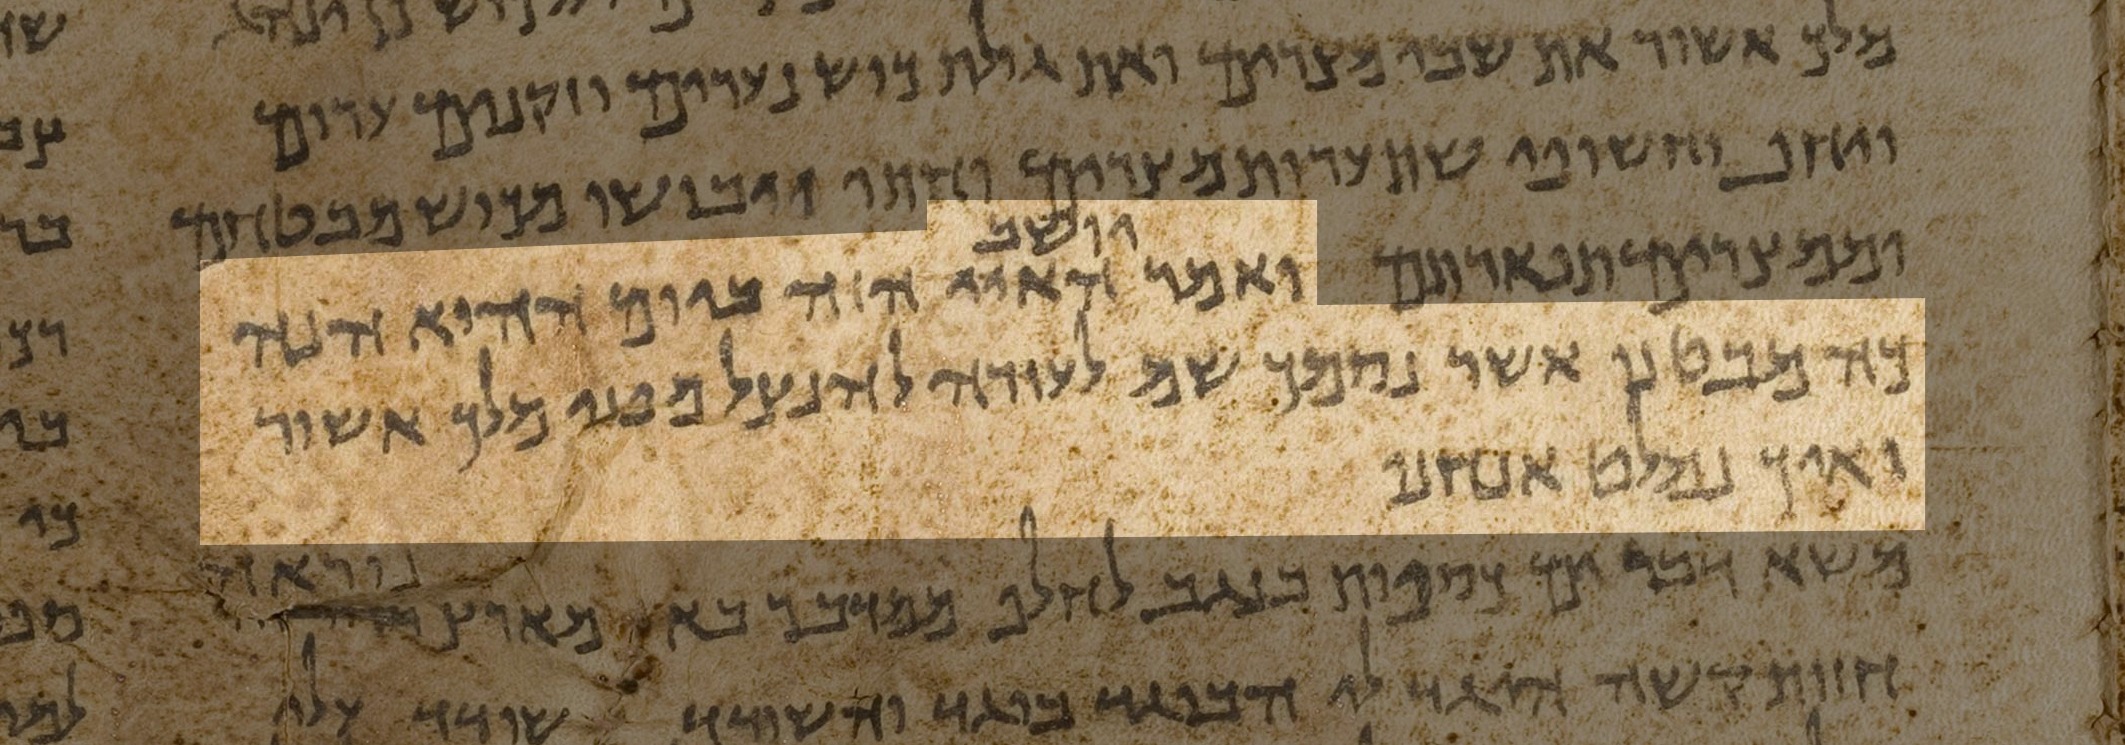 מלך אשור את שבי מצרים ואת גולת כוש נערים וזקנים ערום
ויחף וחשופי שת ערות מצרים וחתו ויבושו מכוש מבטחם
יושב
וממצרים תפארתם ואמר האיי הזה ביום ההוא הנה
כה מבטנו אשר נסמך שם לעזרה להנצל מפני מלך אשור
ואיך נמלט אנחנו
נוראה
משא דבר ים כסופות בנגב לחלף ממדבר בא מארץ
חזות קשה הוגד לי הבוגד בוגד והשודד שודד עלי